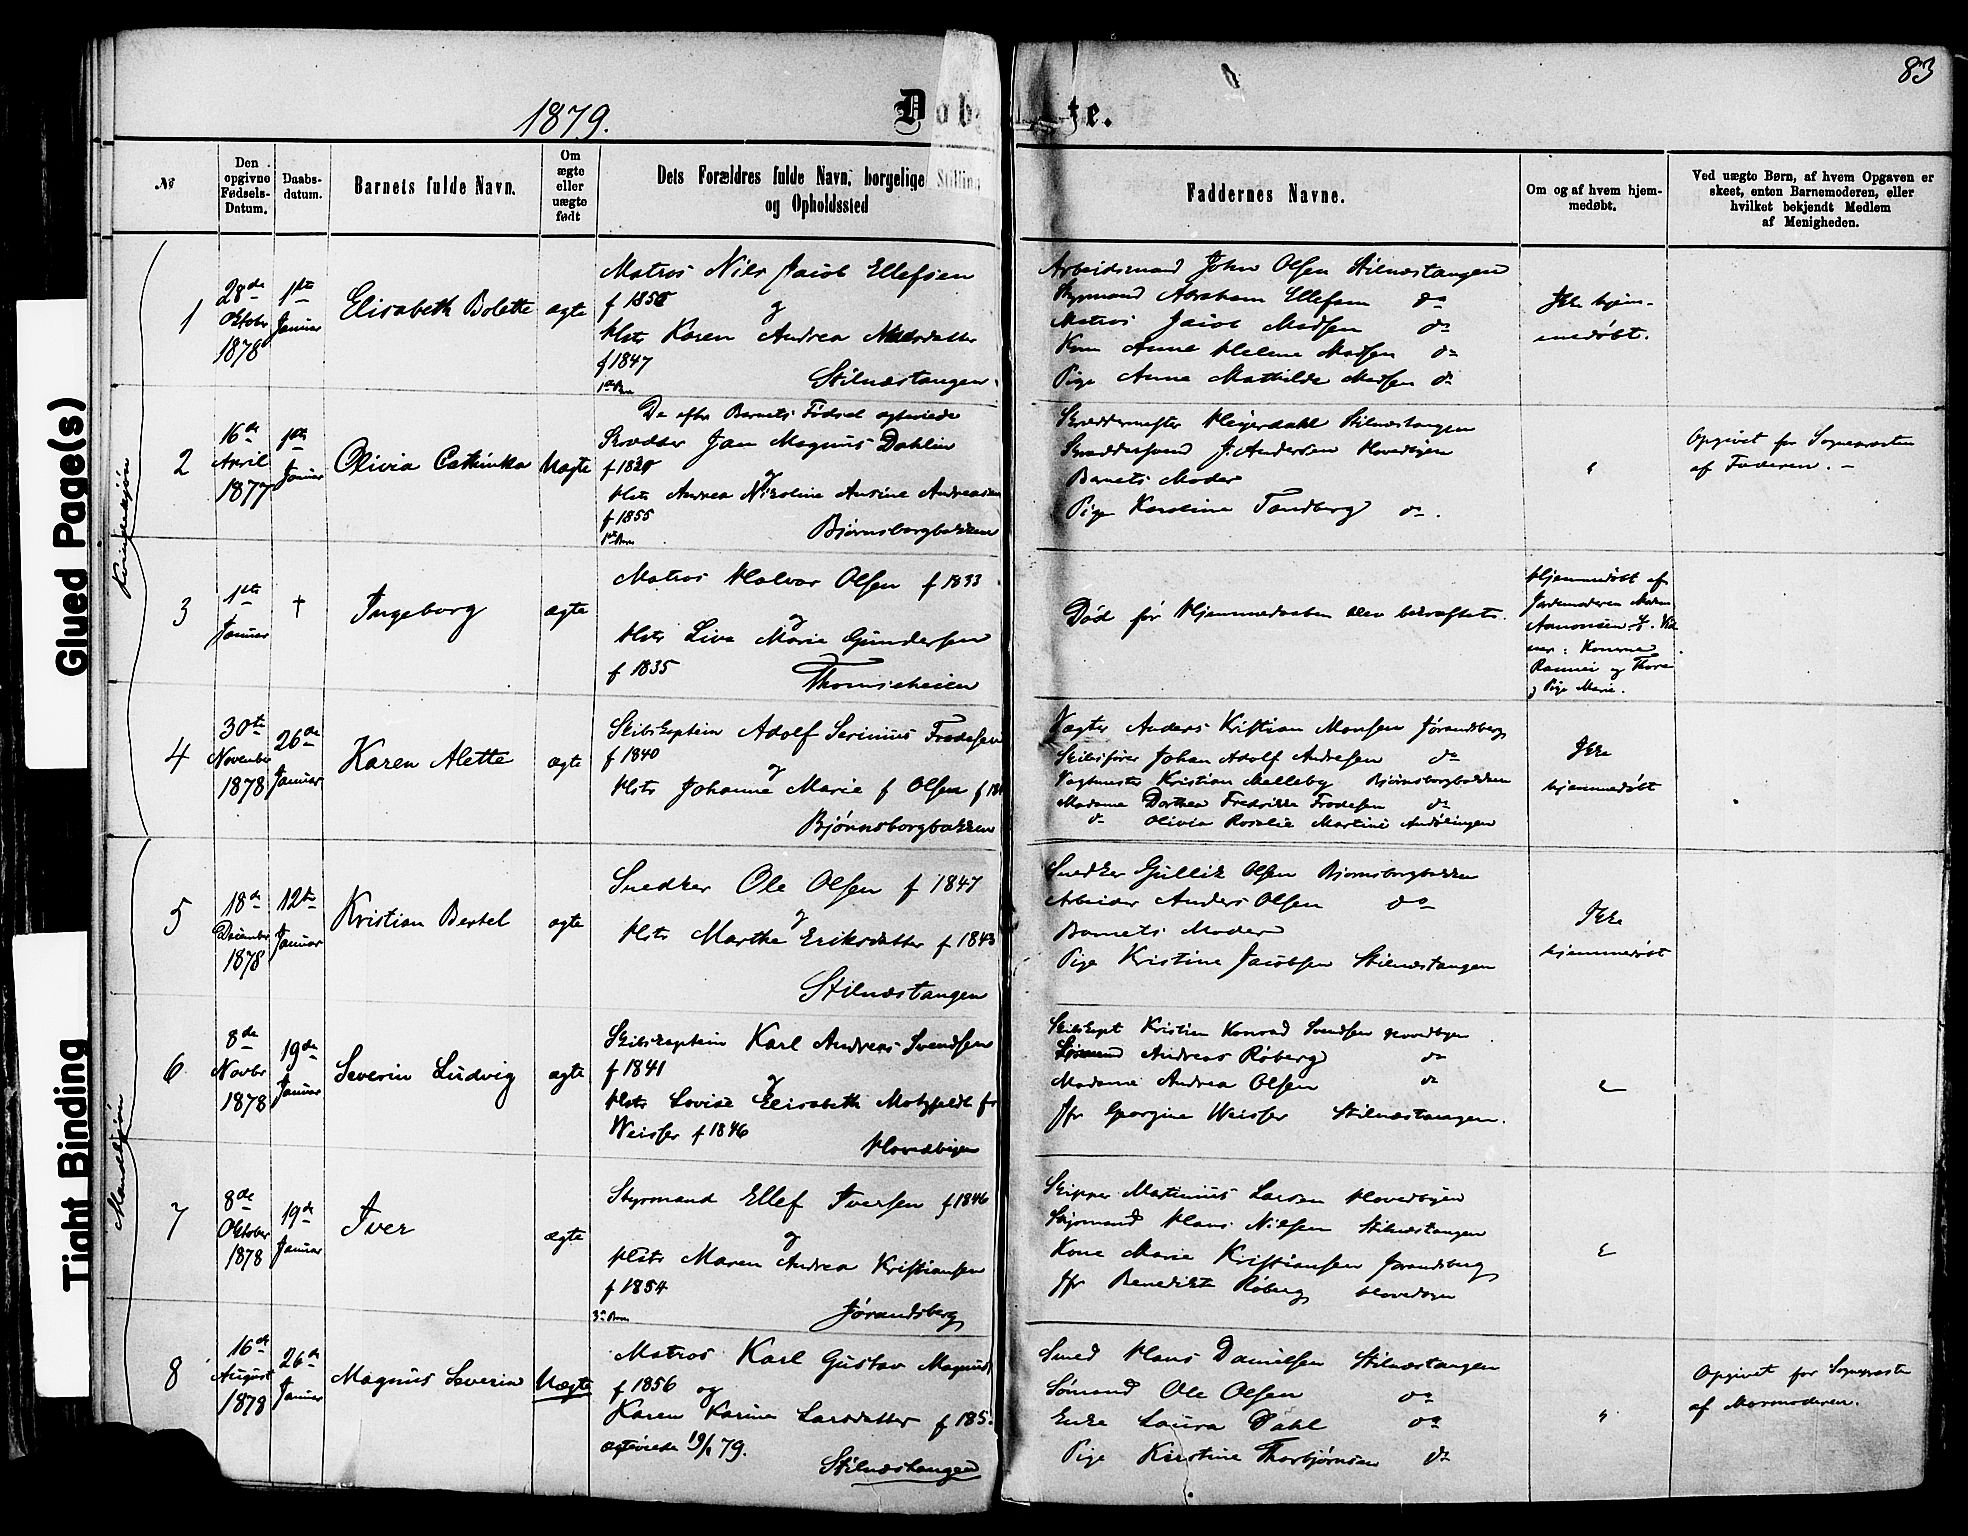 83
1879.
Daabs
te.
№
Den opgivne Fødsels-Datum.
Daabs-datum.
Barnets fulde Navn.
Om ægte eller uægte født
Dets Forældres fulde Navn, borgelige Stilling og Opholdssted
Faddernes Navne.
Om og af hvem hjem-medøbt.
Ved uægte Børn, af hvem Opgaven er skeet, enten Barnemoderen, eller hvilket bekjendt Medlem af Menigheden.
Kvindekjøn
1
28de Oktober 1878
1ste Januar
Elisabeth Bolette
ægte
Matros Nils Jacob Ellefsen
f 1855
og
Hstr Karen Andrea Madsdatter
f 1847
1ste Barn
Stilnæstangen
Arbeidsmand John Olsen Stilnæstangen
Styrmand Abraham Ellefsen do
Matros Jacob Madsen do
Kone Anne Helene Madsen do
Pige Anna Mathilde Madsen do
Ikke hjem-
medøbt.
2
16de April 1877
1ste Januar
Olivia Cathinka
Uægte
De efter Barnets Fødsel ægteviede
Skrædder Jan Magnus Dahlin
f 1820
og
Hstr Andrea Nicoline Ansine Andreasen
f 1855
1ste Barn
Bjørnsborgbakken
Skræddermester Heyerdahl Stilnæstangen
Skræddersvend J. Andersen Hovedbyen
Barnets Moder
Pige Karoline Tandberg do.
"
Opgivet for Sognepresten
af Faderen. —
3
1ste Januar
†
Ingeborg
ægte
Matros Halvor Olsen f 1833
og
Hstr Live Marie Gundersen
f 1835
Thomesheien
Død før Hjemmedaaben blev bekræftet.
Hjemmedøbt af
Jordemoderen Madm
Aamonsen. Vid
ner: Konerne
Rannei og Thore
og Pige Marie.
4
30te November 1878
26de Januar
Karen Alette
ægte
Skibskaptein Adolf Serinius Frodesen
f 1840
og
Hstr Johanne Marie f Olsen f 18
Bjørnsborgbakken
Vægter Anders Kristian Monsen Jørandsberg
Skibsfører Johan Adolf Andresen do
Vagtmester Kristian Melleby Bjørnsborgbakken
Madame Dorthea Fredrikke Frodesen do
do Olivia Rosalie Martine
Ikke
hjemmedøbt
Mandkjøn
5
18de December 1878
12te Januar
Kristian Bertel
ægte
Snedker Ole Olsen f 1847
og
Hstr Marthe Eriksdatter f 1843
Stilnæstangen
Snedker Gullik Olsen Bjørnsborgbakken
Arbeider Anders Olsen do
Barnets Moder
Pige Kristine Jacobsen Stilnæstangen
Ikke
hjemmedøbt
6
8de Novbr 1878
19de Januar
Severin Ludvig
ægte
Skibskaptein Karl Andreas Svendsen
f 1841
og
Hstr Lovise Elisabeth Motzfeldt f
Weisser f 1846
Hovedbyen
Skibskapt Kristian Konrad Svendsen Hovedbyen
Andreas Røberg do
Madame Andrea Olsen do
Jfr Georgine Weisser Stilnæstangen.
"
7
8de Oktober 1878
19de Januar
Iver
ægte
Styrmand Ellef Iversen f 1846
og
Hstr Maren Andrea Kristiansen
f 1854
3die Barn
Jørandsberg
Skipper Matinius Larsen Hovedbyen
Styrmand Hans Nilsen Stilnæstangen
Kone Marie Kristiansen Jørandsberg
Jfr Benedikte Røberg Hovedbyen
"
8
16de August 1878
26de Januar
Magnus Severin
Uægte
Matros Karl Gustav Magnus
f 1856 og
Karen Karine Larsdatter f 185
ægteviede 19/1 79.
Stilnæstangen
Smed Hans Danielsen Stilnæstangen
Sømand Ole Olsen do
Enke Laura Dahl do
Pige Kirstine Thorbjørnsen do
"
Opgivet for Sognepresten
af Mormoderen.
Glued Page(s)
Tight Binding